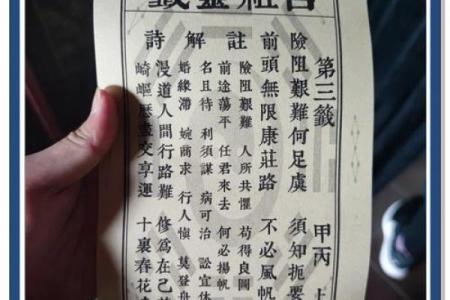 呂祖靈籤
第三籤 甲丙
險阻艱難何足虞 須知扼要
前頭無限康莊路 不必風帆
註解詩
險阻艱難 人所共懼 苟得良圖
前途蕩平 任君來去 何必揚帆
名且待 利須謀 病可治 訟宜休
婚緣滯 婉商求 行人愼 莫登舟
漫道人間行路難 修為在己
崎嶇歷盡交享運 十裏春花